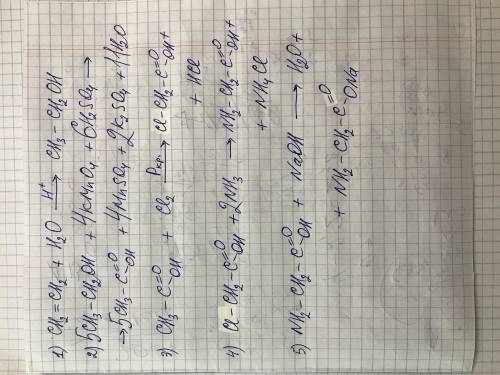 1) CH₂=CH₂ + H₂O —H⁺→ CH₃ – CH₂OH
2) 5CH₃–CH₂OH + 4KMnO₄ + 6H₂SO₄ →
→ 5CH₃–C(=O)–OH + 4MnSO₄ + 2K₂SO₄ + 11H₂O
3) CH₃ – C(=O)–OH + Cl₂ —Pкр.→ Cl–CH₂–C(=O)–OH +
+ HCl
4) Cl–CH₂–C(=O)–OH + 2NH₃ → NH₂–CH₂–C(=O)–OH +
+ NH₄Cl
5) NH₂–CH₂–C(=O)–OH + NaOH → H₂O +
+ NH₂–CH₂–C(=O)–ONa